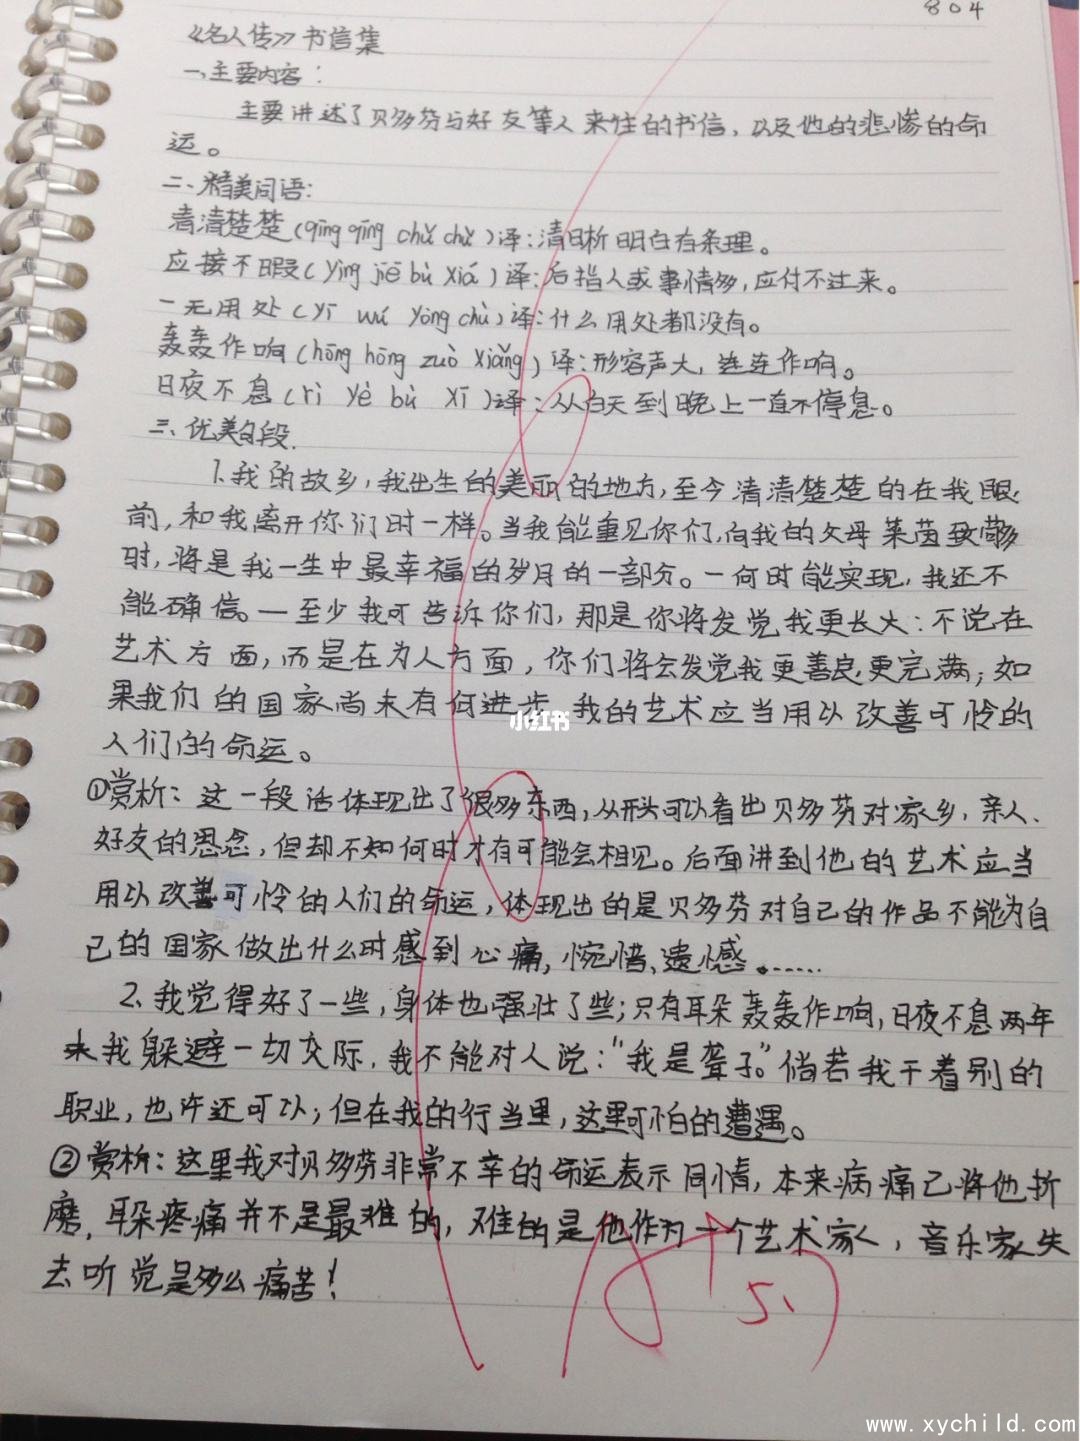 804
《名人传》书信集
一、主要内容：
主要讲述了贝多芬与好友等人来往的书信，以及他的悲惨的命
运。
二、精美词语：
清清楚楚(qīng qīng chǔ chǔ)译：清晰明白有条理。
应接不暇(yìng jiē bù xiá)译：后指人或事情多，应付不过来。
一无用处(yī wú yòng chù)译：什么用处都没有。
轰轰作响(hōng hōng zuò xiǎng)译：形容声大，连连作响。
日夜不息(rì yè bù xī)译：从白天到晚上一直不停息。
三、优美句段.
1.我的故乡，我出生的美丽的地方，至今清清楚楚的在我眼
前，和我离开你们时一样。当我能重见你们，向我的父母莱茵致
时，将是我一生中最幸福的岁月的一部分。一何时能实现，我还不
能确信。—至少我可告诉你们，那是你将发觉我更长大：不说在
艺术方面，而是在为人方面，你们将会发觉我更善良更完满；如
果我们的国家尚未有何进步，我的艺术应当用以改善可怜的
人们的命运。
①赏析：这一段话体现出了很多东西，从开头可以看出贝多芬对家乡，亲人、
好友的思念，但却不知何时才有可能会相见。后面讲到他的艺术应当
用以改善可怜的人们的命运，体现出的是贝多芬对自己的作品不能为自
己的国家做出什么时感到心痛，惋惜、遗憾。……
2.我觉得好了一些，身体也强壮了些；只有耳朵轰轰作响，日夜不息两年
来我躲避一切交际，我不能对人说：“我是聋子。”倘若我干着别的
职业，也许还可以；但在我的行当里，这里可怕的遭遇。
②赏析：这里我对贝多芬非常不幸的命运表示同情，本来病痛已将他折
磨，耳朵疼痛并不是最难的，难的是他作为一个艺术家，音乐家失
去听觉是多么痛苦！
小红书
www.xychild.com